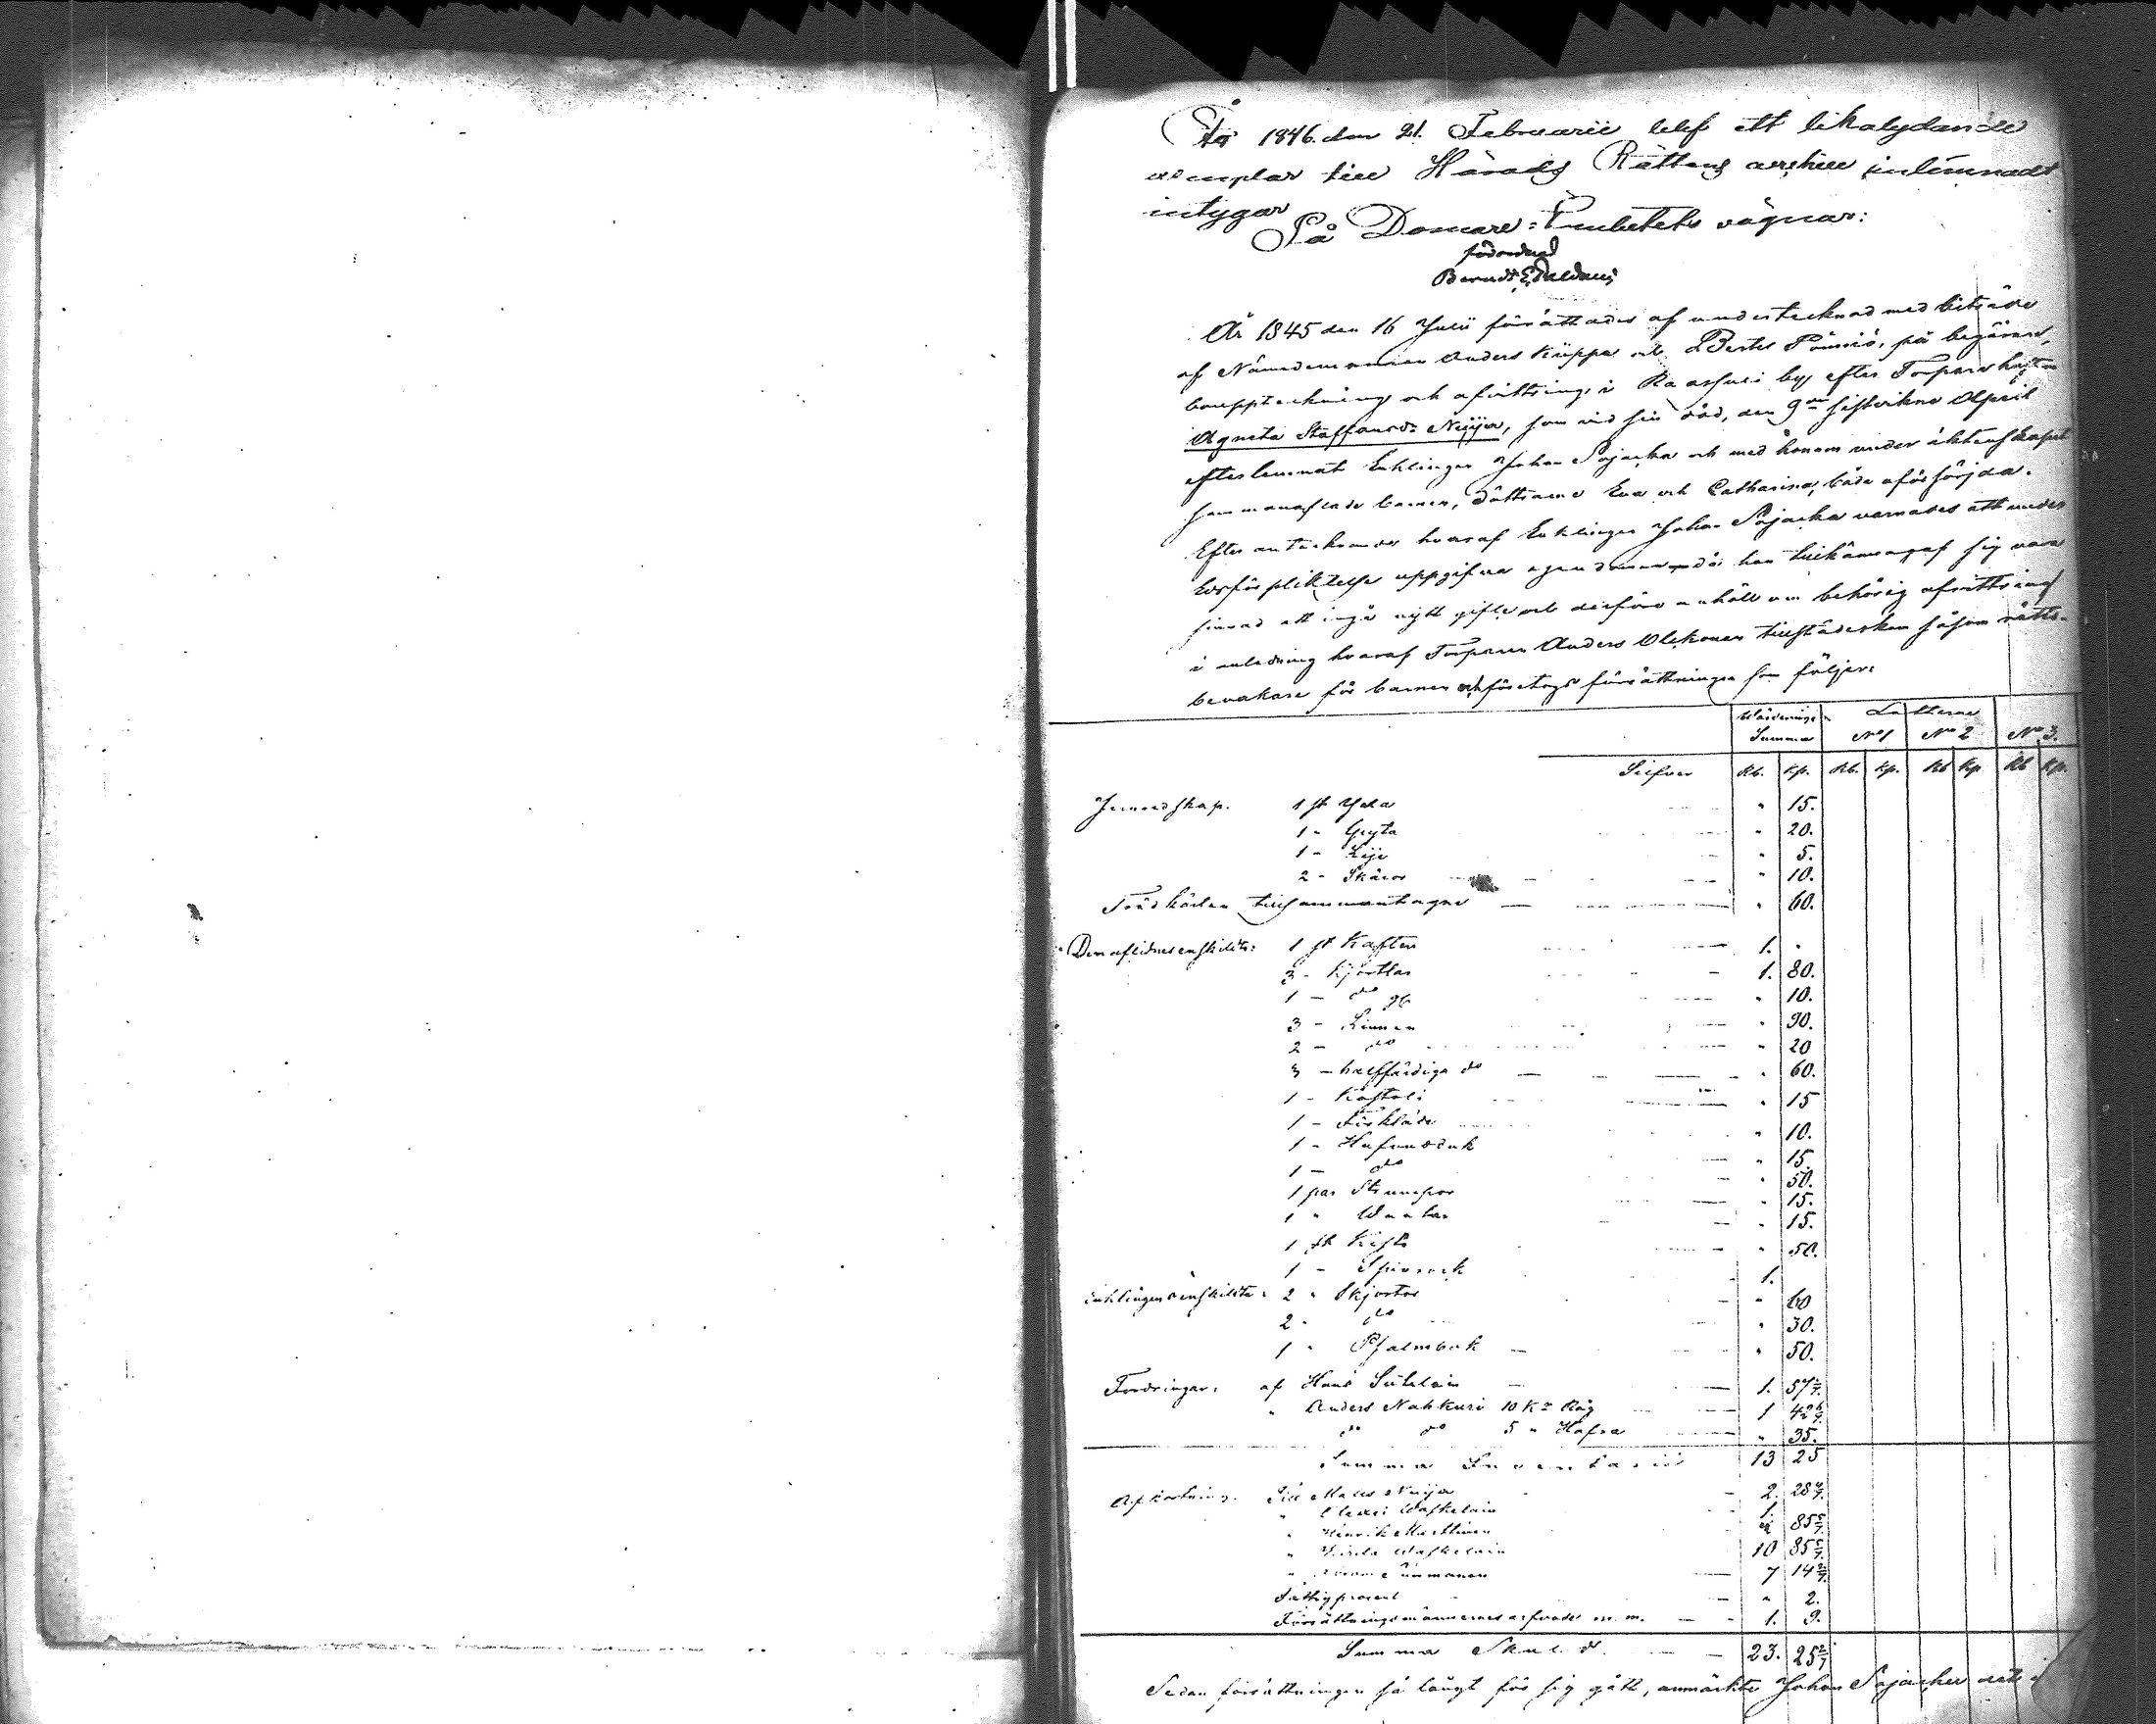 År 1846. den 21. Februarii blef ett likalydande
exemplar till Härads Rättens arkiv inlemnadt
intygar
På Domare-Embetets vägnar:
förordnad
År 1845 den 16 Julii förrättades af undertecknad med biträde
af Nämndemannen Anders Küppa och Bertel Pönniö, på begäran,
bouppteckning och afvittring i by efter Torpare hustrun
Agneta Staffansdr Neijja, som vid sin död, den 9de sistvikne April
efterlemnat Enklingen Johan Pajacka och med honom under äktenskapet
sammanaflade barnen, döttrarne Eva och Catharina, båda oförsörjda.
Efter antecknande hvaraf Enklingen Johan Pajacka varnades att under
Edsförpliktelse uppgifva egendomen, då han tillkännagaf sig vara
sinnad att ingå nytt gifte och derföre anhöll om behörig afvittring
i anledning hvaraf Torparen Anders Olckonen tillstädeskom såsom rätts-
bevakare för barnen och företogs förrättningen som följer:
Värderings Summa Lotterne
No 1 No 2 No 3.
Silfver Rb. Kp. Rb. Kp. Rb Kp Rb Kp.
Jernredskap. 1 st Yxa " 15.
1 " Gryta " 20.
1 " Lije " 5.
2 " Skäror " 10.
Trädkärlen tillsammantagne " 60.
Den aflidnes enskildta: 1 st Kaftan 1. "
3 " Kjortlar 1. 80.
1 " do " 10.
3 " Linnen " 90.
2 " do " 20
3 " halffärdiga do " 60.
1 " Kostoli " 15
1 " Förkläde " 10.
1 " Hufvudduk " 15.
1 " do " 50.
1 par Strumpor " 15.
1 " Vantar " 15.
1 st Kista " 50.
1 " Spinrock 1.
Enklingens enskildta: 2 " Skjortor " 60
2 " do " 30.
1 " Psalmbok " 50.
Fordringar: af Hans 1. 57 1/7.
" Anders Nahkuri 10 Kr Råg 1 42 6/7.
do do 5 " Hafra " 35.
Summa Inventarii 13 25
Afkortning. Till Matts Neijja 2. 28 4/7.
" Waskelain 1.
" Henrik Marttinen 85 5/7.
" Waskelain 10 85 5/7.
7 14 2/7.
Fattigprocent " 2.
Förrättningsmännernes arfvode m. m. 1. 9.
Summa Skuld 23. 25 2/7
Sedan förrättningen så långt för sig gått, anmärkte Johan Pajacka att